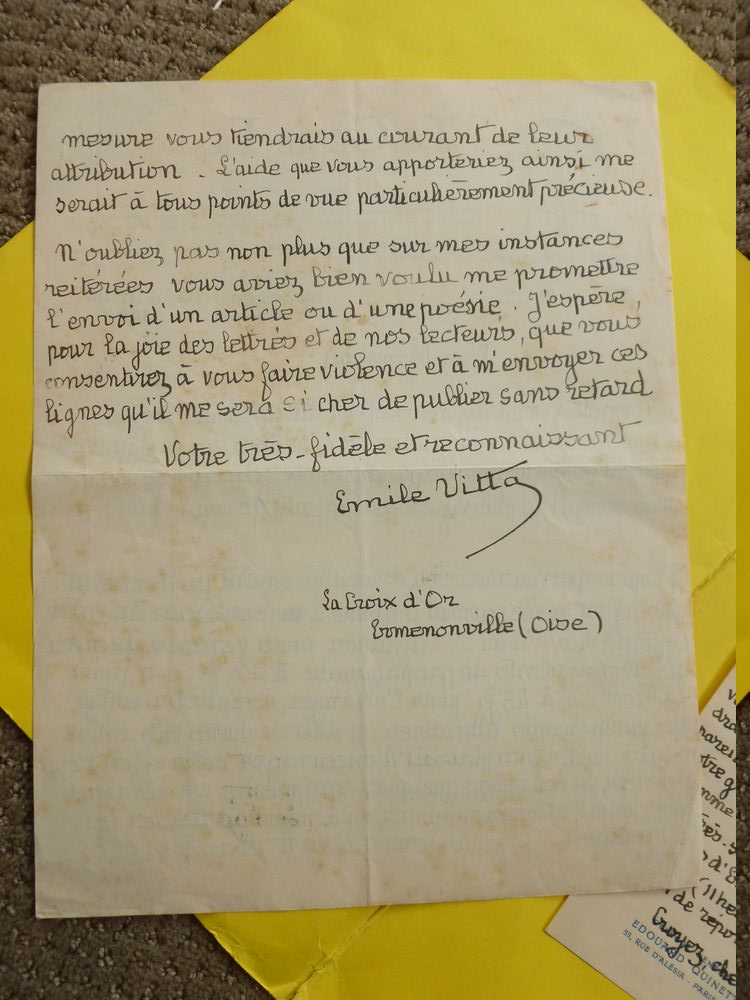 mesure vous tiendrais au courant de leur
attribution. L'aide que vous apporteriez ainsi me
serait à tous points de vue particulièrement précieuse.
N'oubliez pas non plus que sur mes instances
reitérées vous aviez bien voulu me promettre
l'envoi d'un article ou d'une poésie. J'espère,
pour la joie des lettrés et de nos lecteurs, que vous
consentirez à vous faire violence et à m'envoyer ces
lignes qu'il me sera si cher de publier sans retard
Votre très-fidèle et reconnaissant
Emile Vitta
La Croix d'Or
Ermenonville (Oise)
de répo
Croyez, che
EDOUARD QUINET
53, RUE D'ALÉSIA - PARI